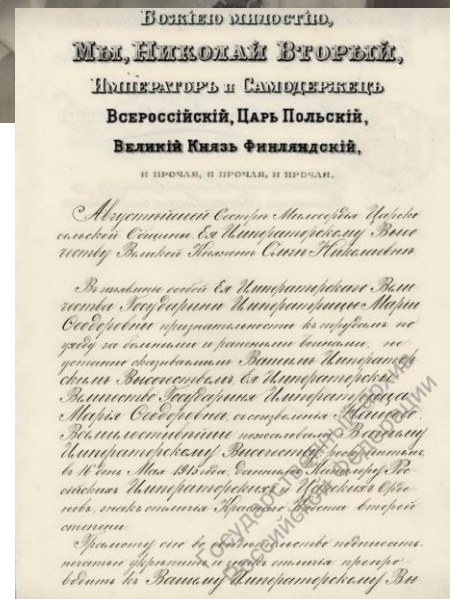 Божіею милостію,
Мы, Николай Вторый,
Императоръ и Самодержецъ
Всероссійскій, Царь Польскій,
Великій Князь Финляндскій,
и прочая, и прочая, и прочая.
Августѣйшей Сестрѣ Милосердія Царско
сельской Общины Ея Императорскому Высо
честву Великой Княжнѣ Ольгѣ Николаевнѣ
Въ изъявленіе особой Ея Императорскаго Вели
чества Государыни Императрицы Маріи
Ѳеодоровны признательности къ трудамъ по
уходу за больными и ранеными воинами, не
устанно оказываемымъ Вашимъ Император
скимъ Высочествомъ, Ея Императорское
Величество Государыня Императрица
Марія Ѳеодоровна, съ соизволенія Нашего,
Всемилостивѣйше пожаловала Вашему
Императорскому Высочеству рескриптомъ,
въ 16 день Мая 1915 года, даннымъ Канцлеру Рос
сійскихъ Императорскихъ и Царскихъ Орде
новъ, знакъ отличія Краснаго Креста второй
степени.
Грамоту сію во свидѣтельство подписать,
печатью укрѣпить и знакъ отличія препро
водить къ Вашему Императорскому Вы
Государственный архив
Российской Федерации